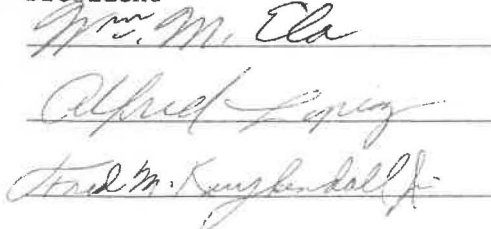 Wm. M. Ela
Alfred Lopez
M. Kuykendall Jr